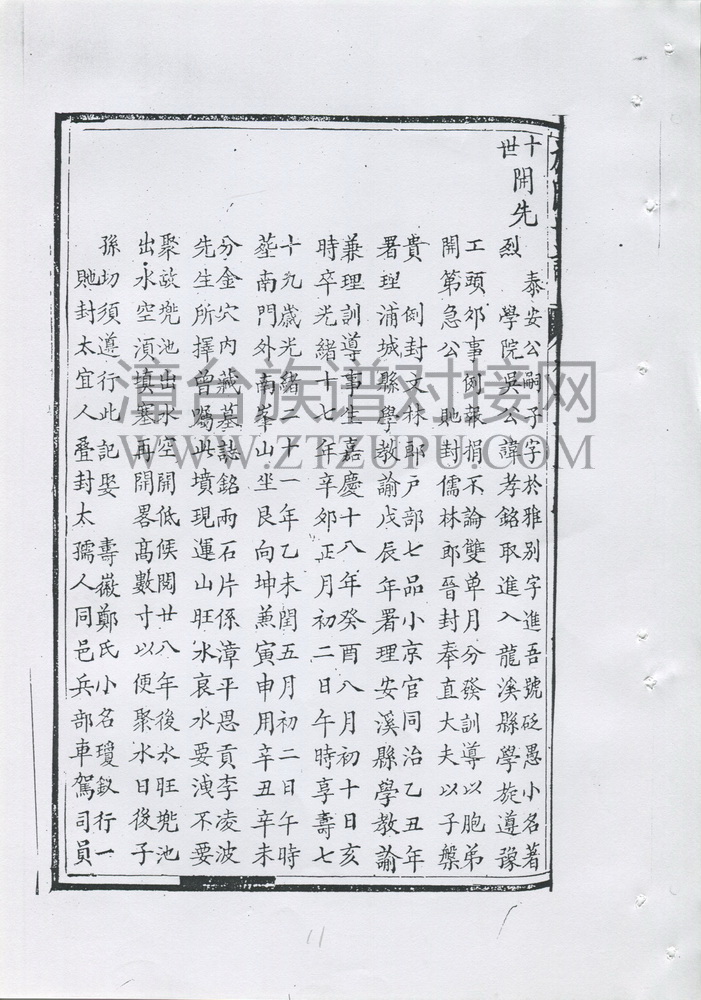 十世
開先
烈
泰安公嗣子字於雅别字進吾號砭愚小名著
學院吳公諱孝銘取進入龍溪縣學旋遵豫
工頭郊事例報捐不論雙單月分發訓導以胞弟
開第急公貤封儒林郎晉封奉直大夫以子槃
貴例封文林郎户部七品小京官同治乙丑年
署理浦城縣學教諭戊辰年署理安溪縣學教諭
兼理訓導事生嘉慶十八年癸酉八月初十日亥
時卒光緒十七年辛卯正月初二日午時享壽七
十九歲光緒二十一年乙未閏五月初二日午時
塟南門外南峯山坐艮向坤兼寅申用辛丑辛未
分金穴内藏墓誌銘兩石片係漳平恩貢李凌波
先生所擇曾嘱此墳現運山旺水衰水要洩不要
聚故兠池出水空開低候閲廿八年後水旺兠池
出水空須填塞再開畧高數寸以便聚水日後子
孫切須遵行此記娶 壽徽鄭氏小名瓊釵行一
貤封太宜人叠封太孺人同邑兵部車駕司員
漳台族谱对接网
WWW.ZTZUPU.COM
11